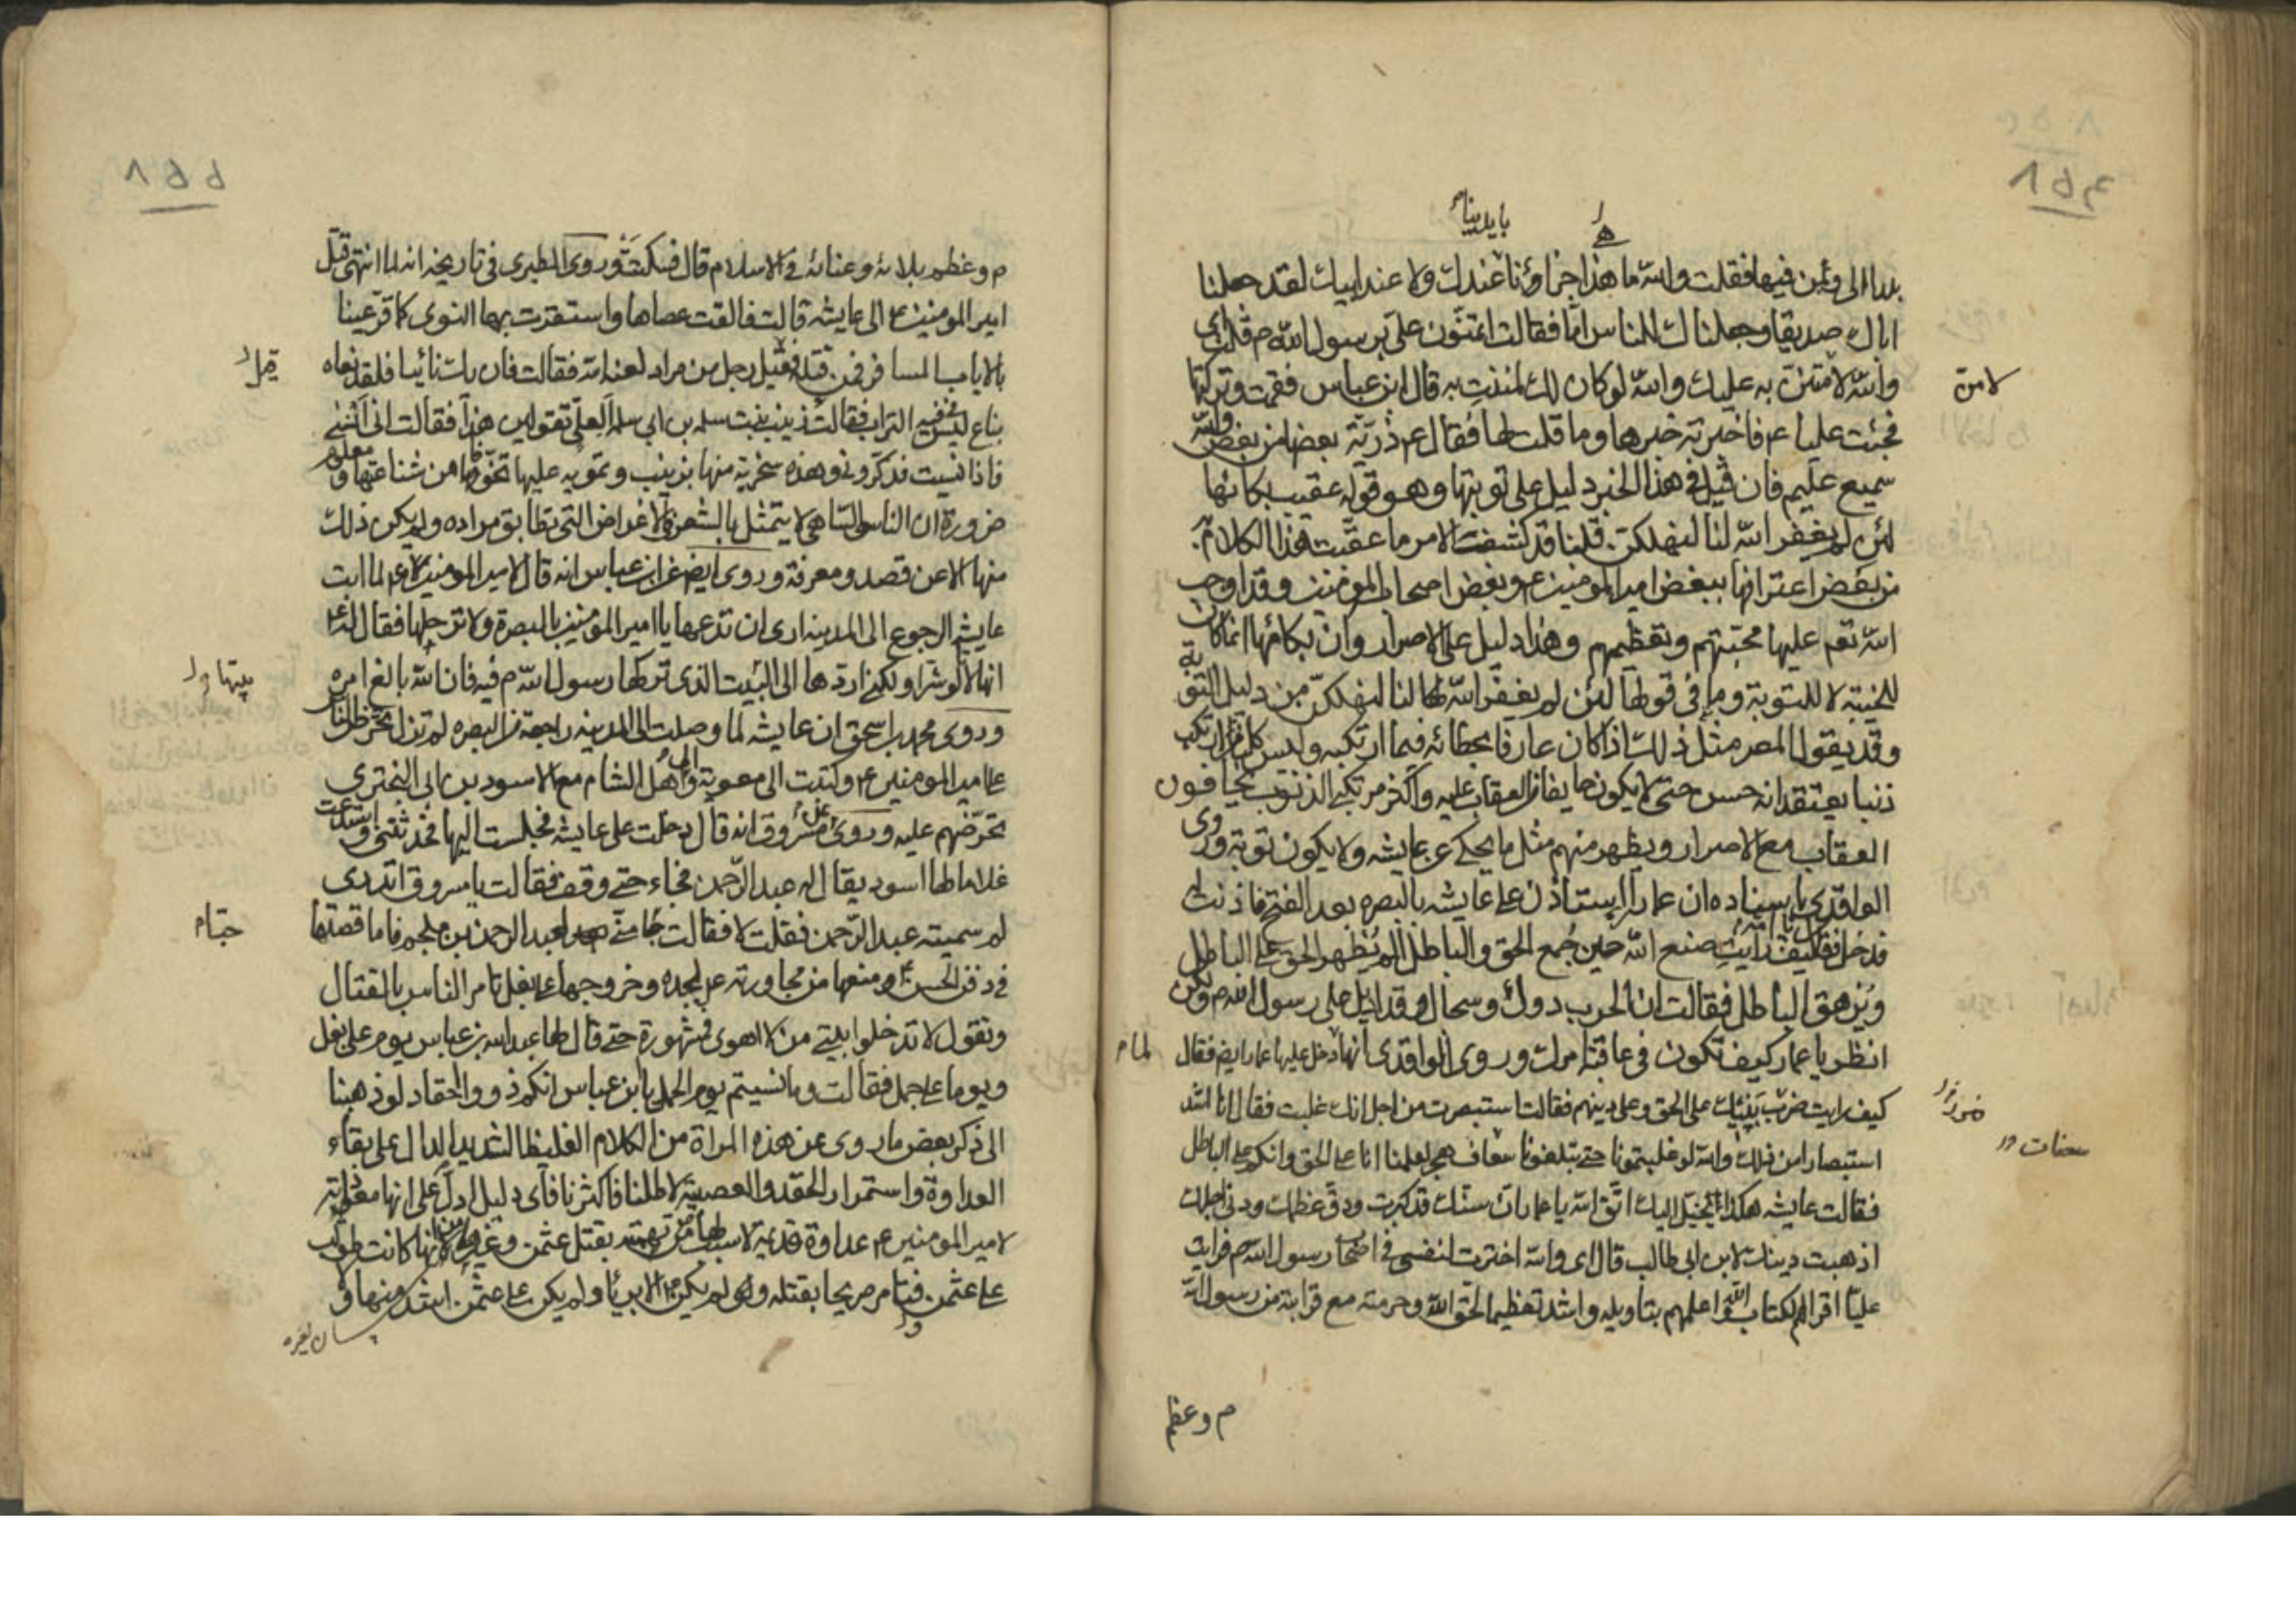 ٨٥٤
بايدينا م
بلد الى و من فيها فقلت والله ما هذا جزاؤنا عندك ولا عند ابيك لقد جعلنا
اباك صديقا وجعلناك للناس اما فقالت اتمتنون على برسول الله ص قلت اى
والله لامتن به عليك والله لو كان لك لمننت به قال ابن عباس فقمت وتركتها
لامن
فجئت عليا ع فاخبرته خبرها وما قلت لها فقال ع ذرية بعضها من بعض والله
سميع عليم فان قيل فى هذا الخبر دليل على توبتها وهو قوله عقيب بكائها
لئن لم يغفر الله لنا لنهلكن قلنا قد كشفت الامر ما عقبت هذا الكلام
من بغض اعترافها ببغض امير المومنين ع وبغض اصحابه المومنين وقد اوجب
الله تعم عليها محبتهم وتعظيمهم وهذا دليل على الاصرار وان بكائها انما كان
للخيبة لا للتوبة وما فى قولها لئن لم يغفر الله لنا لنهلكن من دليل التوبة
وقد يقول المصر مثل ذلك اذا كان عارفا بخطائه فيما ارتكبه وليس كل من ارتكب
ذنبا يعتقد انه حسن حتى لا يكون خايفا من العقاب عليه واكثر مرتكبى الذنوب يخافون
العقاب مع الاصرار ويظهر منهم مثل ما يحكى عن عايشه ولا يكون توبة وروى
الواقدى باسناده ان عمارا استاذن على عايشه بالبصره بعد الفتح فاذنت له
فدخل فقال يا امه كيف رايت صنع الله حين جمع الحق والباطل الم يظهر الحق على الباطل
ويزهق الباطل فقالت ان الحرب دول وسجال وقد اديل على رسول الله ص ولكن
انظر يا عمار كيف تكون فى عاقبة امرك وروى الواقدى انها دخل عليها عمار ايضا فقال
كيف رايت ضرب بنيك على الحق وعلى دينهم فقالت استبصرت من اجل انك غلبت فقال انا اشد
استبصارا من ذلك والله لو غلبتمونا حتى تبلغونا سعاف هجر لعلمنا انا على الحق وانكم على الباطل
سعفات
فقالت عايشه هكذا يخيل اليك اتق الله يا عمار ان سنك قد كبرت ودق عظمك ودنى اجلك
اذهبت دينك لابن ابى طالب قال اى والله اخترت لنفسى فى اصحاب رسول الله ص فرايت
عليا اقراهم لكتاب الله واعلمهم بتاويله واشد تعظيما لحق الله وحرمته مع قرابته من رسول الله
م وعظم
٨٥٥
م وعظم بلائه وعنائه فى الاسلام قال فسكتت وروى الطبرى فى تاريخه انه لما انتهى قتل
امير المومنين ع الى عايشه قالت فالقت عصاها واستقرت بها النوى كما قر عينا
بالاياب المسافر فمن قتله فقيل رجل من مراد لعنه الله فقالت فان يك نائيا فلقد نعاه
بناع ليس فى فيه التراب فقالت زينب بنت سلمه بن ابى سلمه العلى تقولين هذا فقالت انى انسى
فاذا نسيت فذكرونى وهذه سخرية منها بزينب وتمويه عليها تخوفا من شناعتها ومعلوم
ضرورة ان الناسى الساهى لا يتمثل بالشعر فى الاغراض التى تطابق مراده ولم يكن ذلك
منها الا عن قصد ومعرفة وروى ايضا عن ابن عباس انه قال لامير المومنين ع لما ابت
عايشه الرجوع الى المدينه ارى ان تدعها يا امير المومنين بالبصرة ولا ترحلها فقال له ع
انها لا تالو شرا ولكنى اردها الى البيت الذى تركها رسول الله ص فيه فان الله بالغ امره
بيتها
وروى محمد بن اسحق ان عايشه لما وصلت الى المدينه راجعة من البصره لم تزل تحرض الناس
على امير المومنين ع وكتبت الى معوية والى اهل الشام مع الاسود بن ابى البخترى
تحرضهم عليه وروى عن مسروق انه قال دخلت على عايشه فجلست اليها فحدثتنى واستدعت
غلاما لها اسود يقال له عبد الرحمن فجاء حتى وقف فقالت يا مسروق اتدرى
لم سميته عبد الرحمن فقلت لا فقالت حبا منى لعبد الرحمن بن ملجم فاما قصتها
فى دفن الحسن ع ومنعها من مجاورته عن لجده وخروجها على بغل تامر الناس بالقتال
وتقول لا تدخلوا بيتى من لا اهوى فمشهورة حتى قال لها عبد الله بن عباس يوم على بغل
ويوما على جمل فقالت وما نسيتم يوم الجمل يا ابن عباس انكم ذوو احقاد لو ذهبنا
الى ذكر بعض ما روى عن هذه المراة من الكلام الغليظ الشديد الدال على بقاء
العداوة واستمرار الحقد والعصبية لاطلنا فاكثرنا فاى دليل ادل على انها
لامير المومنين ع عداوة قديمة لا سبب لها من تهمته بقتل عثمن وغيره لانها كانت
على عثمن فتامر صريحا بقتله ولم يكن على عثمن اشد منها و